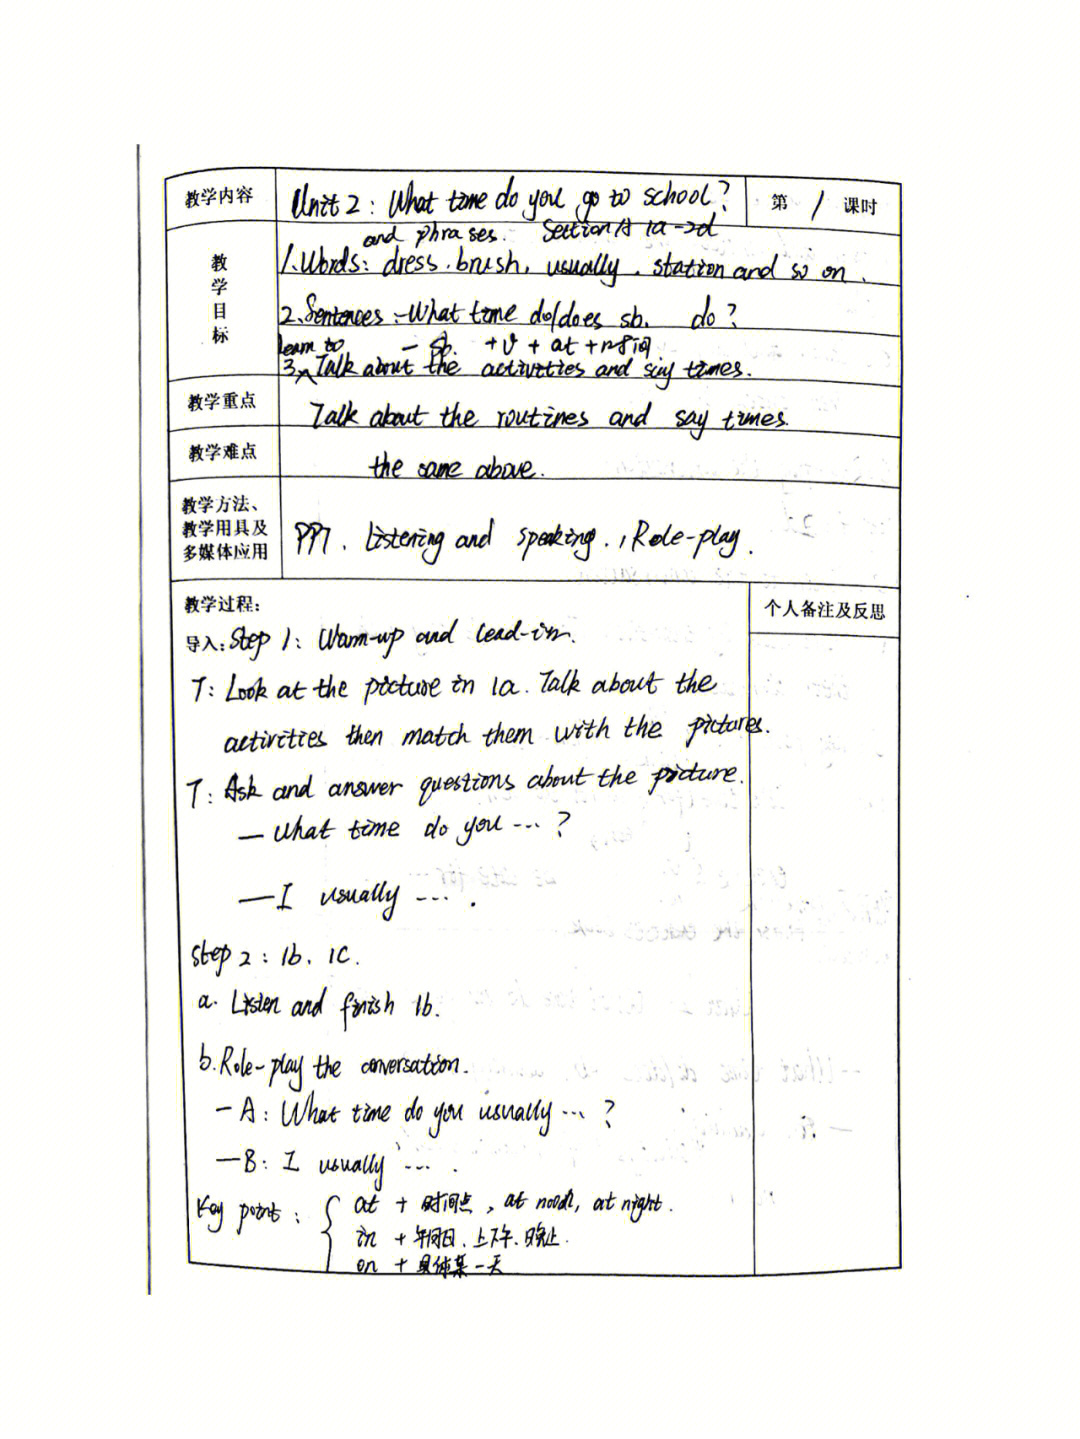 教学内容 Unit 2: What time do you go to school? 第 1 课时
Section A 1a-2d
教学目标
and phrases.
1.Words: dress.brush, usually, station and so on.
2.Sentences:-What time do/does sb. do?
- sb. +v + at +时间
learn to
3.Talk about the activities and say times.
教学重点 Talk about the routines and say times.
教学难点 the same above.
教学方法、
教学用具及
多媒体应用
PPT. Listening and speaking., Role-play.
教学过程: 个人备注及反思
导入:Step 1: Warm-up and lead-in.
T: Look at the picture in 1a. Talk about the
activities then match them with the pictures.
T: Ask and answer questions about the picture.
— What time do you ...?
—I usually ....
Step 2: 1b, 1C.
a. Listen and finish 1b.
b.Role-play the conversation.
-A: What time do you usually ...?
—B: I usually ....
Key point: at + 时间点, at noon, at night.
in + 年月日、上下午、晚上.
on + 具体某一天